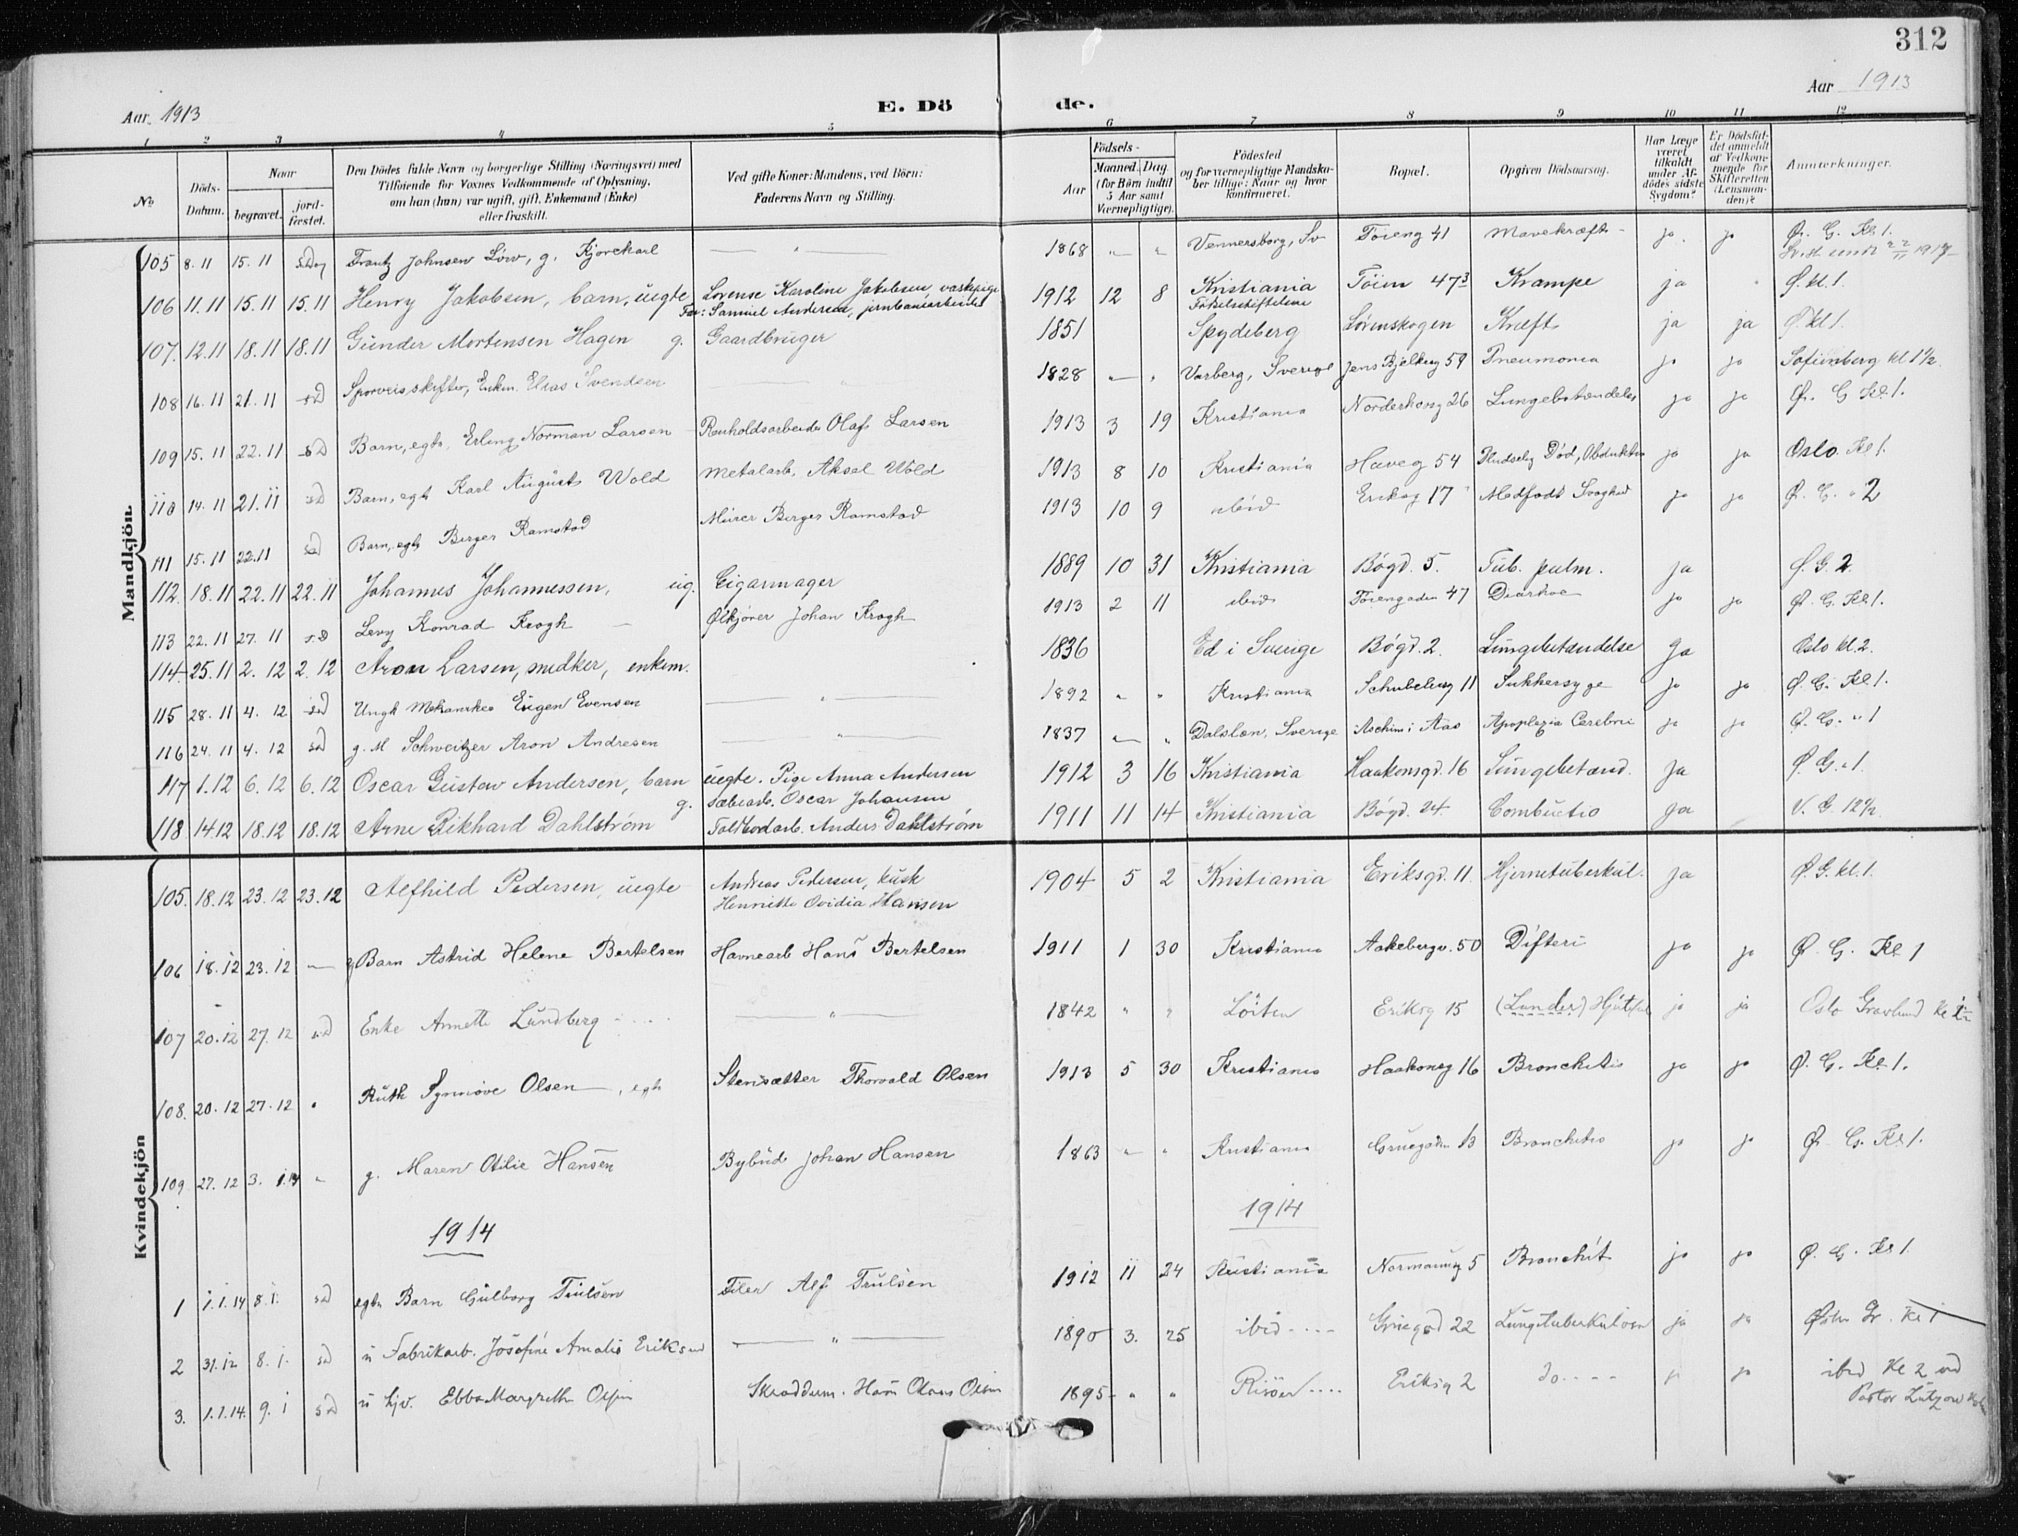 312
Aar 1913 E. Dö de. Aar 1913
1 2 3 4 5 6 7 8 9 10 11 12
No
Döds-Datum.
Naar
begravet.
jord-fæstet.
Den Dödes fulde Navn og borgerlige Stilling (Næringsvei) med
Tilföiende for Voxnes Vedkommende af Oplysning,
om han (hun) var ugift, gift, Enkemand (Enke)
eller fraskilt.
Ved gifte Koner: Mandens, ved Börn:
Faderens Navn og Stilling.
Födsels-
Aar
Maaned. Dag.
(for Börn indtil
5 Aar samt
Værnepligtige).
Födested
og for værnepligtige Mandska-
ber tillige: Naar og hvor
konfirmeret.
Bopæl.
Opgiven Dödsaarsag.
Har Læge
været
tilkaldt
under Af-
dödes sidste
Sygdom?
Er Dödsfal-
det anmeldt
af Vedkom-
mende for
Skifteretten
(Lensman-
den)?
Anmærkninger.
Mandkjön.
105 8.11 15.11 Frantz Johnsen Löw, g. Kjörekarl — " — 1868 " " Vennersborg, Sv Töieng 41 Mavekræft ja ja Ø. G. Kl 1.
106 11.11 15.11 15.11 Henry Jakobsen, barn, uegte Lovense Karoline Jakobsen, vaskepige 1912 12 8 Kristiania Töien 47³ Krampe ja Ø. kl. 1
Far: Samuel Andersen, jernbanearbeider Fødselsstiftelsen
107. 12.11 18.11 18.11 Gunder Mortensen Hagen g. Gaardbruger 1851 Spydeberg Lörenskogen Kræft ja ja Ø. kl 1.
108 16.11 21.11 sd Sporveisskifter, Enkm. Elias Svendsen — " — 1828 " " Varberg, Sverige Jens Bjelkesg 59 Pneumonia ja ja Sofienberg kl 1½
109 15.11 22.11 sd Barn, egte, Erling Norman Larsen Renholdsarbeider Olaf Larsen 1913 3 19 Kristiania Norderhovg 26 Lungebetændelse ja ja Ø. G Kl 1.
110 14.11 21.11 sd Barn, egte Karl August Wold Metalarb. Aksel Wold 1913 8 10 Kristiania Haveg 54 Pludselig Död, Obduktion ja ja Oslo Kl 1.
111 15.11 22.11 sd Barn, egte Berger Ramstad Murer Berger Ramstad 1913 10 9 ibid Eriksg 17 Medfödt Svaghed ja ja Ø. G. " 2
112. 18.11 22.11 22.11 Johannes Johannessen, ug. Cigarmager 1889 10 31 Kristiania Bögd. 5. Tub. pulm. ja Ø. G. 2.
113 22.11 27.11 sd Levy Konrad Krogh — Ølkjörer Johan Krogh 1913 2 11 ibid Töiengaden 47 Diarhoe ja ja Ø. G. Kl 1.
114 25.11 2.12 2.12 Aron Larsen, snedker, enkem. 1836 Ed i Sverige Bögd. 2. Lungebetændelse Ja Oslo kl. 2.
115 28.11 4.12 sd Ungk Mekaniker Eugen Evensen — " — 1892 " " Kristiania Schubelerg 11 Sukkersyge ja ja Ø. G. Kl 1.
116 24.11 4.12 sd g. M Schweitzer Aron Andresen — " — 1837 " " Dalslen, Sverige Aschim i Aas Apoplexia Cerebri ja ja Ø. G. " 1
117 1.12 6.12 6.12 Oscar Gustav Andersen, barn uegte. Pige Anna Andersen 1912 3 16 Kristiania Haakonsgd. 16 Lungebetænd. Ja Ø. G. " 1.
sæbearb. Oscar Johansen
118 14.12 18.12 18.12 Arne Rikhard Dahlström g. Toldbodarb. Anders Dahlström 1911 11 14 Kristiania Bögd. 24. Combustio ja V. G 12½
Kvindekjön
105. 18.12 23.12 23.12 Alfhild Pedersen, uegte Andreas Pedersen, kusk 1904 5 2 Kristiania Eriksgd. 11. Hjernetuberkul. Ja Ø. G. kl. 1.
Henriette Ovidia Hansen
106 18.12 23.12 — Barn Astrid Helene Bertelsen Havnearb Hans Bertelsen 1911 1 30 Kristiania Aakebergv. 50 Difteri ja ja Ø. G. Kl 1
107 20.12 27.12 sd Enke Annette Lundberg — " — 1842 " " Löiten Eriksg 15 ja ja Oslo Gravlund
108. 20.12 27.12 " Ruth Synnöve Olsen, egte Stensætter Thorvald Olsen 1913 5 30 Kristiania Haakonsg 16 Bronchitis ja ja Ø. G. Kl 1.
109 27.12 3. 1.14 " g. Maren Otilie Hansen Bybud Johan Hansen 1863 " " Kristiania Gruegaden 13 Bronchitis ja ja Ø. G. Kl 1.
1914 1914
1 1.1.14 8.1. sd egte Barn Gulborg Trulsen Filer Alf Trulsen 1912 11 24 Kristiania Normannsg 5 Bronchit ja ja Ø. G. Kl 1.
2 31.12 8.1. sd u Fabrikarb. Josefine Amalie Eriksen — " — 1890 3. 25 ibid Gruegd 22 Lungetuberkulosen ja ja Østre Gr. Kl 1
3. 1.1.14. 9.1 sd u hjv. Ebba Margrethe Olsen Skræddern. Hans Olaus Olsen 1895 " " Risöer Eriksg 2 do ja ja ibid Kl 2 ved
Pastor Lützow